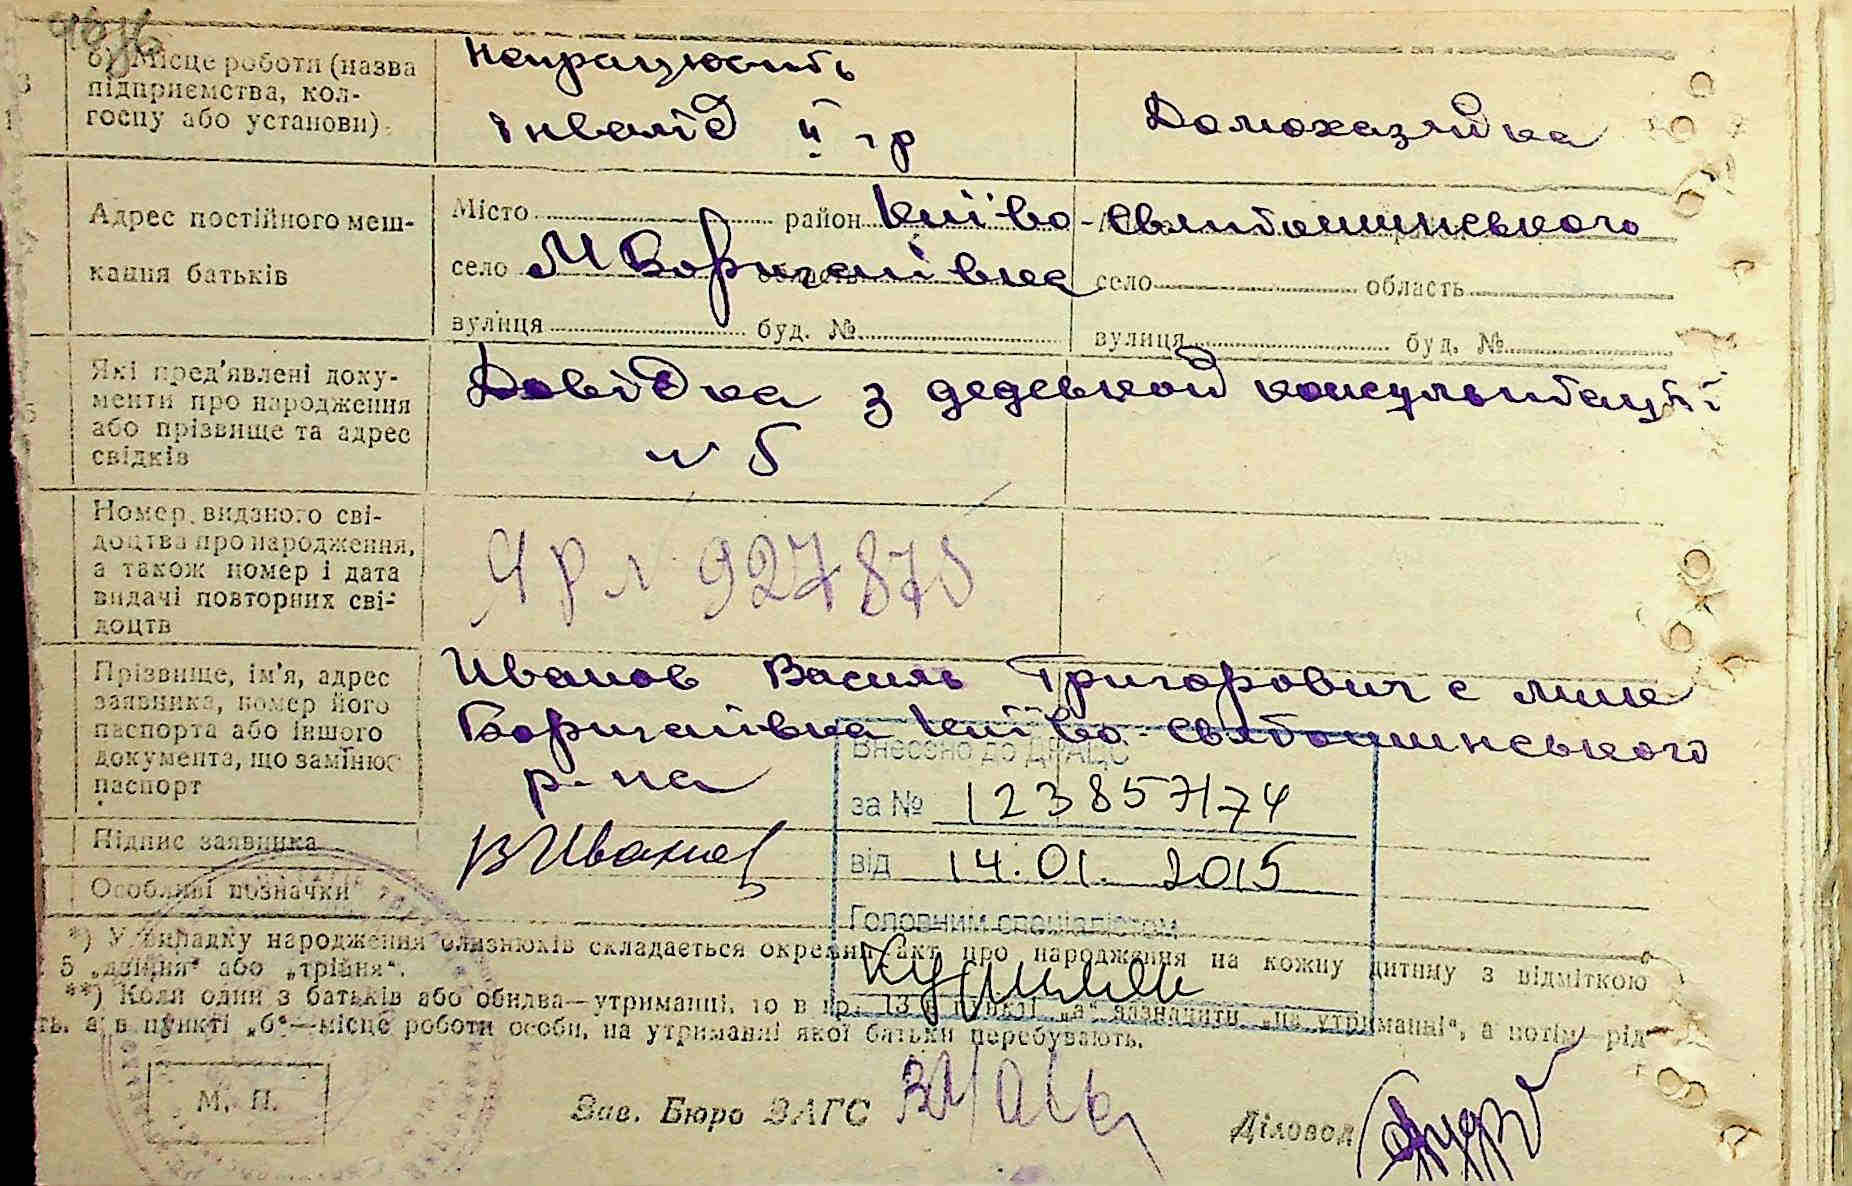 б) Місце роботи (назва
підприємства, кол-
госпу або установи).
Непрацюють
інвалід ІІ гр
Домохазяйка
Адрес постійного меш-
кання батьків
Місто район Києво-Святошинського
село М Борщагівка область село область
вулиця буд. № вулиця буд. №
Які пред'явлені доку-
менти про народження
або прізвище та адрес
свідків
Довідка з дедевкой консультації
№ 5
Номер виданого сві-
доцтва про народження,
а також номер і дата
видачі повторних сві-
доцтв
927875
Прізвище, ім'я, адрес
заявника, номер його
паспорта або іншого
документа, що замінює
паспорт
Иванов Василь Григорович с
Борщагівка Києво-Святошинського
р-на
Внесено до ДРАЦС
за № 123857174
від 14.01.2015
Головним спеціалістом
Підпис заявника
В Иванов
Особливі позначки
*) У випадку народження близнюків складається окремий акт про народження на кожну дитину з відміткою
„двійня“ або „трійня“.
**) Коли один з батьків або обидва—утриманці, то в гр. 13 в пункті „а“ зазначити „на утриманні“, а потім рід
а в пункті „б“—місце роботи особи, на утриманні якої батьки перебувають.
М. П.
Зав. Бюро ЗАГС
Діловод